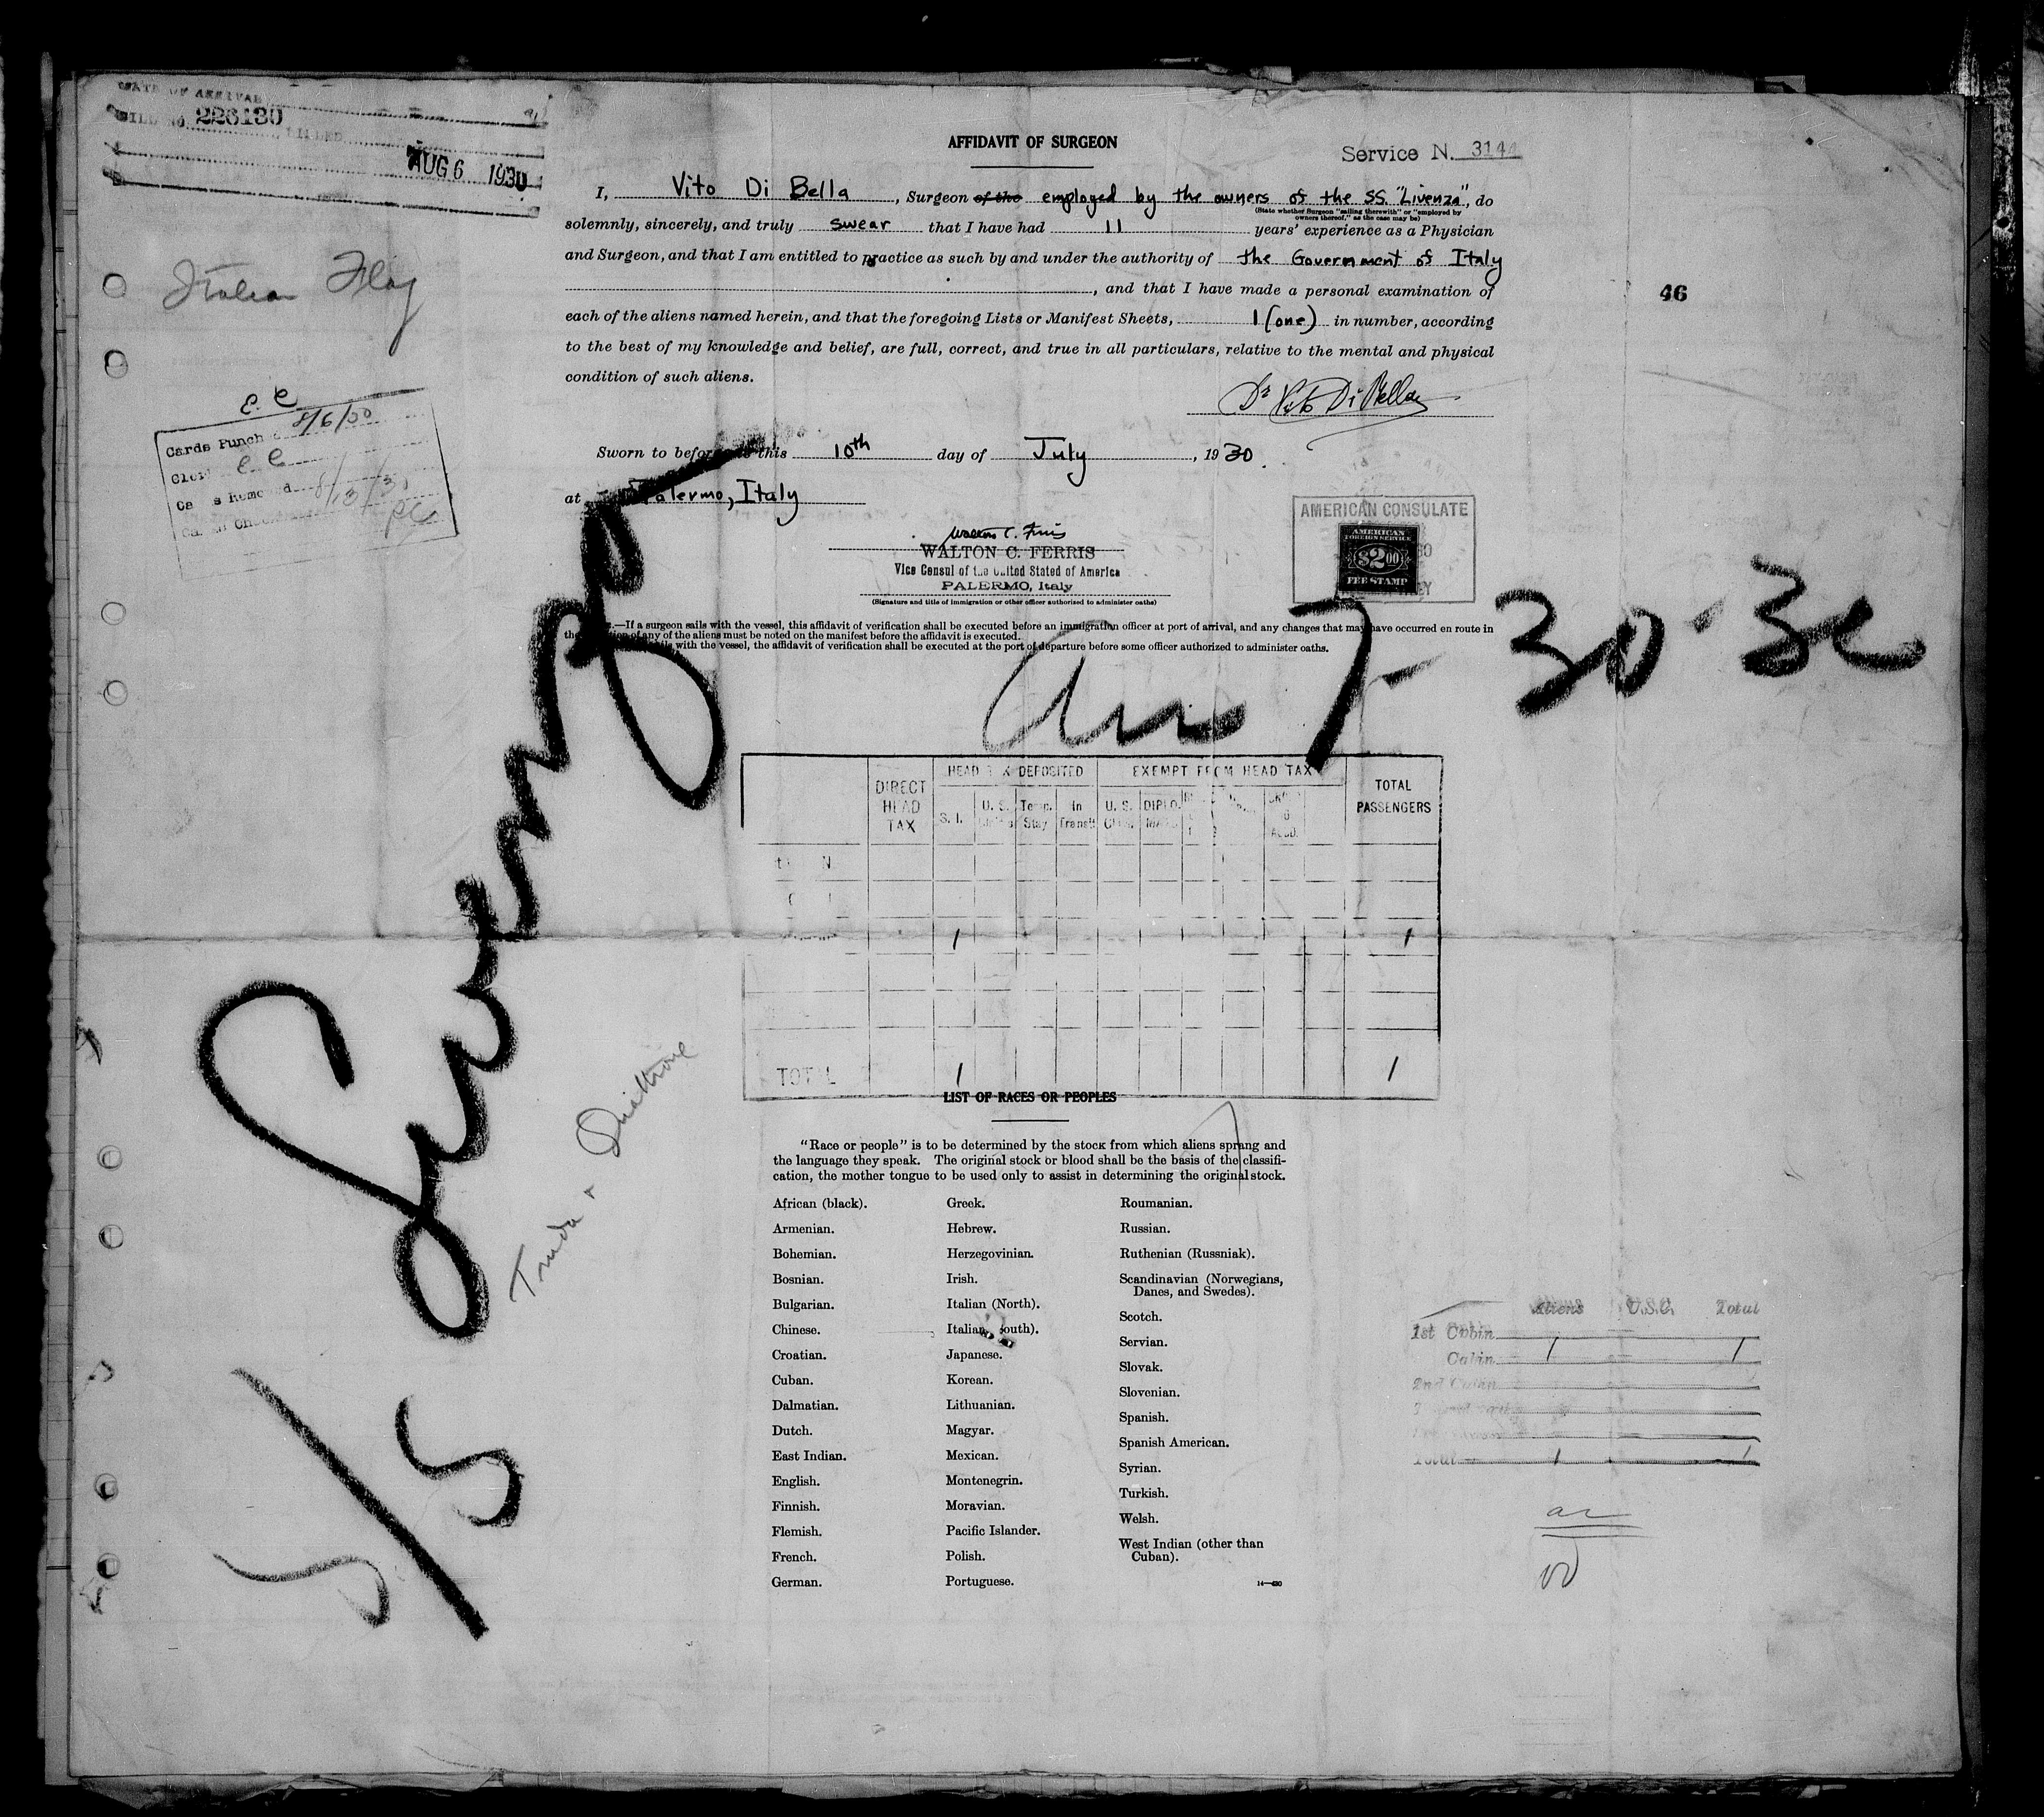 DATE OF ARRIVAL
BILL No. 226130
AUG 6 1930
Italian Flag
E. C
Cards Punch 8/6/30
Clerk E C
Removed 8/13/30
AFFIDAVIT OF SURGEON
Service N. 3144
I, Vito Di Bella, Surgeon of the employed by the owners of the SS. "Livenza", do
(State whether Surgeon "sailing therewith" or "employed by
owners thereof," as the case may be)
solemnly, sincerely, and truly swear that I have had 11 years' experience as a Physician
and Surgeon, and that I am entitled to practice as such by and under the authority of the Government of Italy
, and that I have made a personal examination of
each of the aliens named herein, and that the foregoing Lists or Manifest Sheets, 1 (one) in number, according
to the best of my knowledge and belief, are full, correct, and true in all particulars, relative to the mental and physical
condition of such aliens.
Dr Vito Di Bella
46
Sworn to before this 10th day of July, 1930.
at Palermo, Italy
Walton C. Ferris
WALTON C. FERRIS
Vice Consul of the United Stated of America
PALERMO, Italy
(Signature and title of immigration or other officer authorized to administer oaths)
AMERICAN CONSULATE
AMERICAN
FOREIGN SERVICE
$2.00
FEE STAMP
.—If a surgeon sails with the vessel, this affidavit of verification shall be executed before an immigration officer at port of arrival, and any changes that may have occurred en route in
the of any of the aliens must be noted on the manifest before the affidavit is executed.
with the vessel, the affidavit of verification shall be executed at the port of departure before some officer authorized to administer oaths.
7-30-30
S/S Livenza
DIRECT HEAD TAX
HEAD TAX DEPOSITED
EXEMPT FROM HEAD TAX
TOTAL PASSENGERS
S. I. U. S. Temp. Stay In Transit U. S. DIPLO.
1 1
TOTAL 1 1
LIST OF RACES OR PEOPLES
"Race or people" is to be determined by the stock from which aliens sprang and
the language they speak. The original stock or blood shall be the basis of the classifi-
cation, the mother tongue to be used only to assist in determining the original stock.
African (black).
Armenian.
Bohemian.
Bosnian.
Bulgarian.
Chinese.
Croatian.
Cuban.
Dalmatian.
Dutch.
East Indian.
English.
Finnish.
Flemish.
French.
German.
Greek.
Hebrew.
Herzegovinian.
Irish.
Italian (North).
Italian (South).
Japanese.
Korean.
Lithuanian.
Magyar.
Mexican.
Montenegrin.
Moravian.
Pacific Islander.
Polish.
Portuguese.
Roumanian.
Russian.
Ruthenian (Russniak).
Scandinavian (Norwegians,
Danes, and Swedes).
Scotch.
Servian.
Slovak.
Slovenian.
Spanish.
Spanish American.
Syrian.
Turkish.
Welsh.
West Indian (other than
Cuban).
Aliens U.S.C. Total
1st Cabin
Cabin 1 1
2nd Cabin
Total 1 1